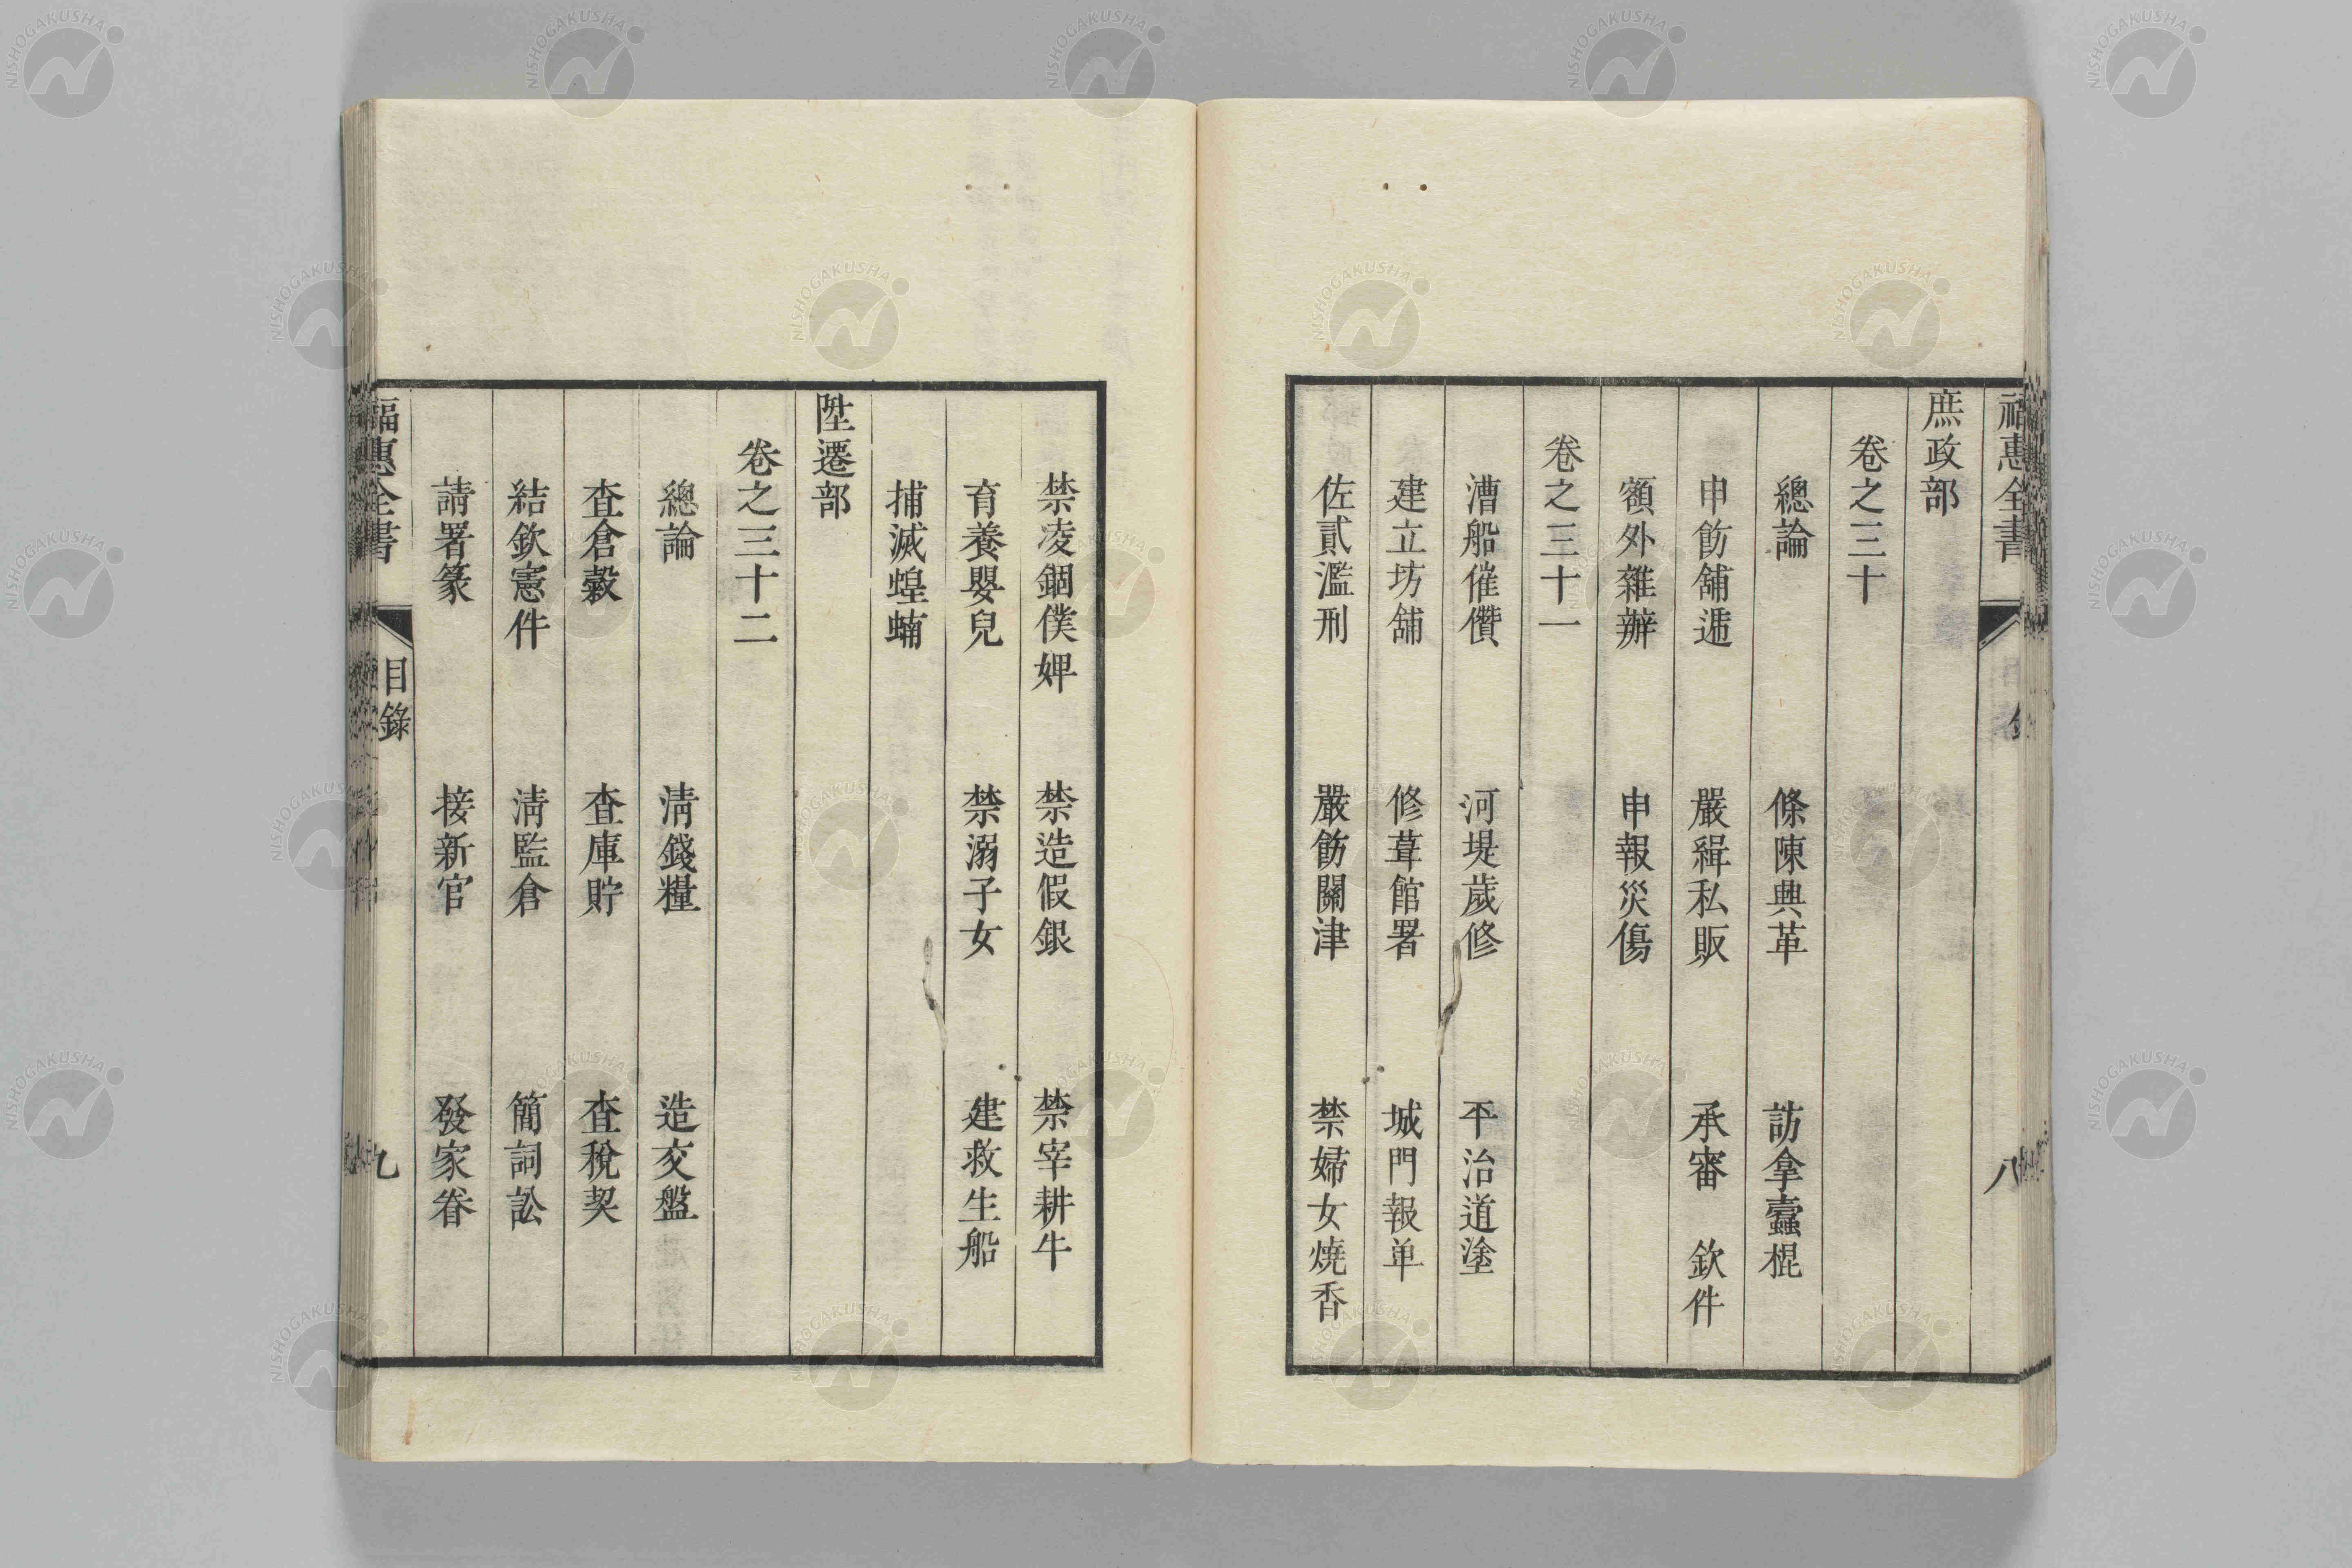 福惠全書
八
庶政部
卷之三十
總論 條陳興革 訪拿蠹棍
申飭舖遞 嚴緝私販 承審 欽件
額外雜辦 申報災傷
卷之三十一
漕船催儹 河堤歲修 平治道塗
建立坊舖 修葺館署 城門報单
佐貳濫刑 嚴飭關津 禁婦女燒香
禁凌錮僕婢 禁造假銀 禁宰耕牛
育養嬰兒 禁溺子女 建救生船
捕滅蝗蝻
陞遷部
卷之三十二
總論 清錢糧 造交盤
查倉穀 查庫貯 查稅契
結欽憲件 清監倉 簡詞訟
請署篆 接新官 發家眷
福惠全書 目錄 九
NISHOGAKUSHA